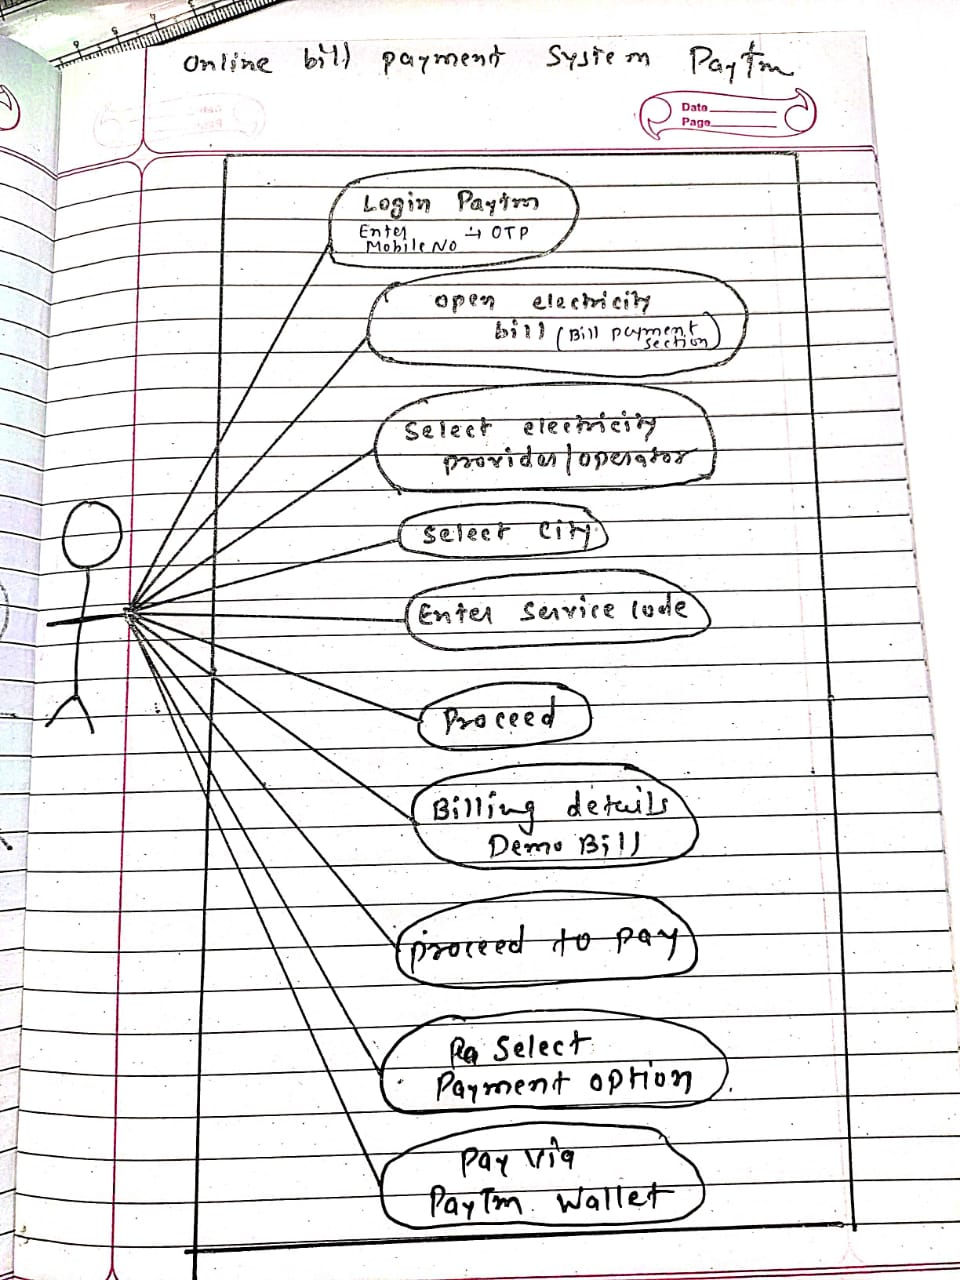 Online bill payment System PayTm
Date
Page
Login Paytm
Enter → OTP
Mobile No
open electricity
bill (Bill payment
section)
Select electricity
provider/operator
Select City
Enter Service Code
Proceed
Billing details
Demo Bill
proceed to pay
Select
Payment option
Pay via
PayTm Wallet